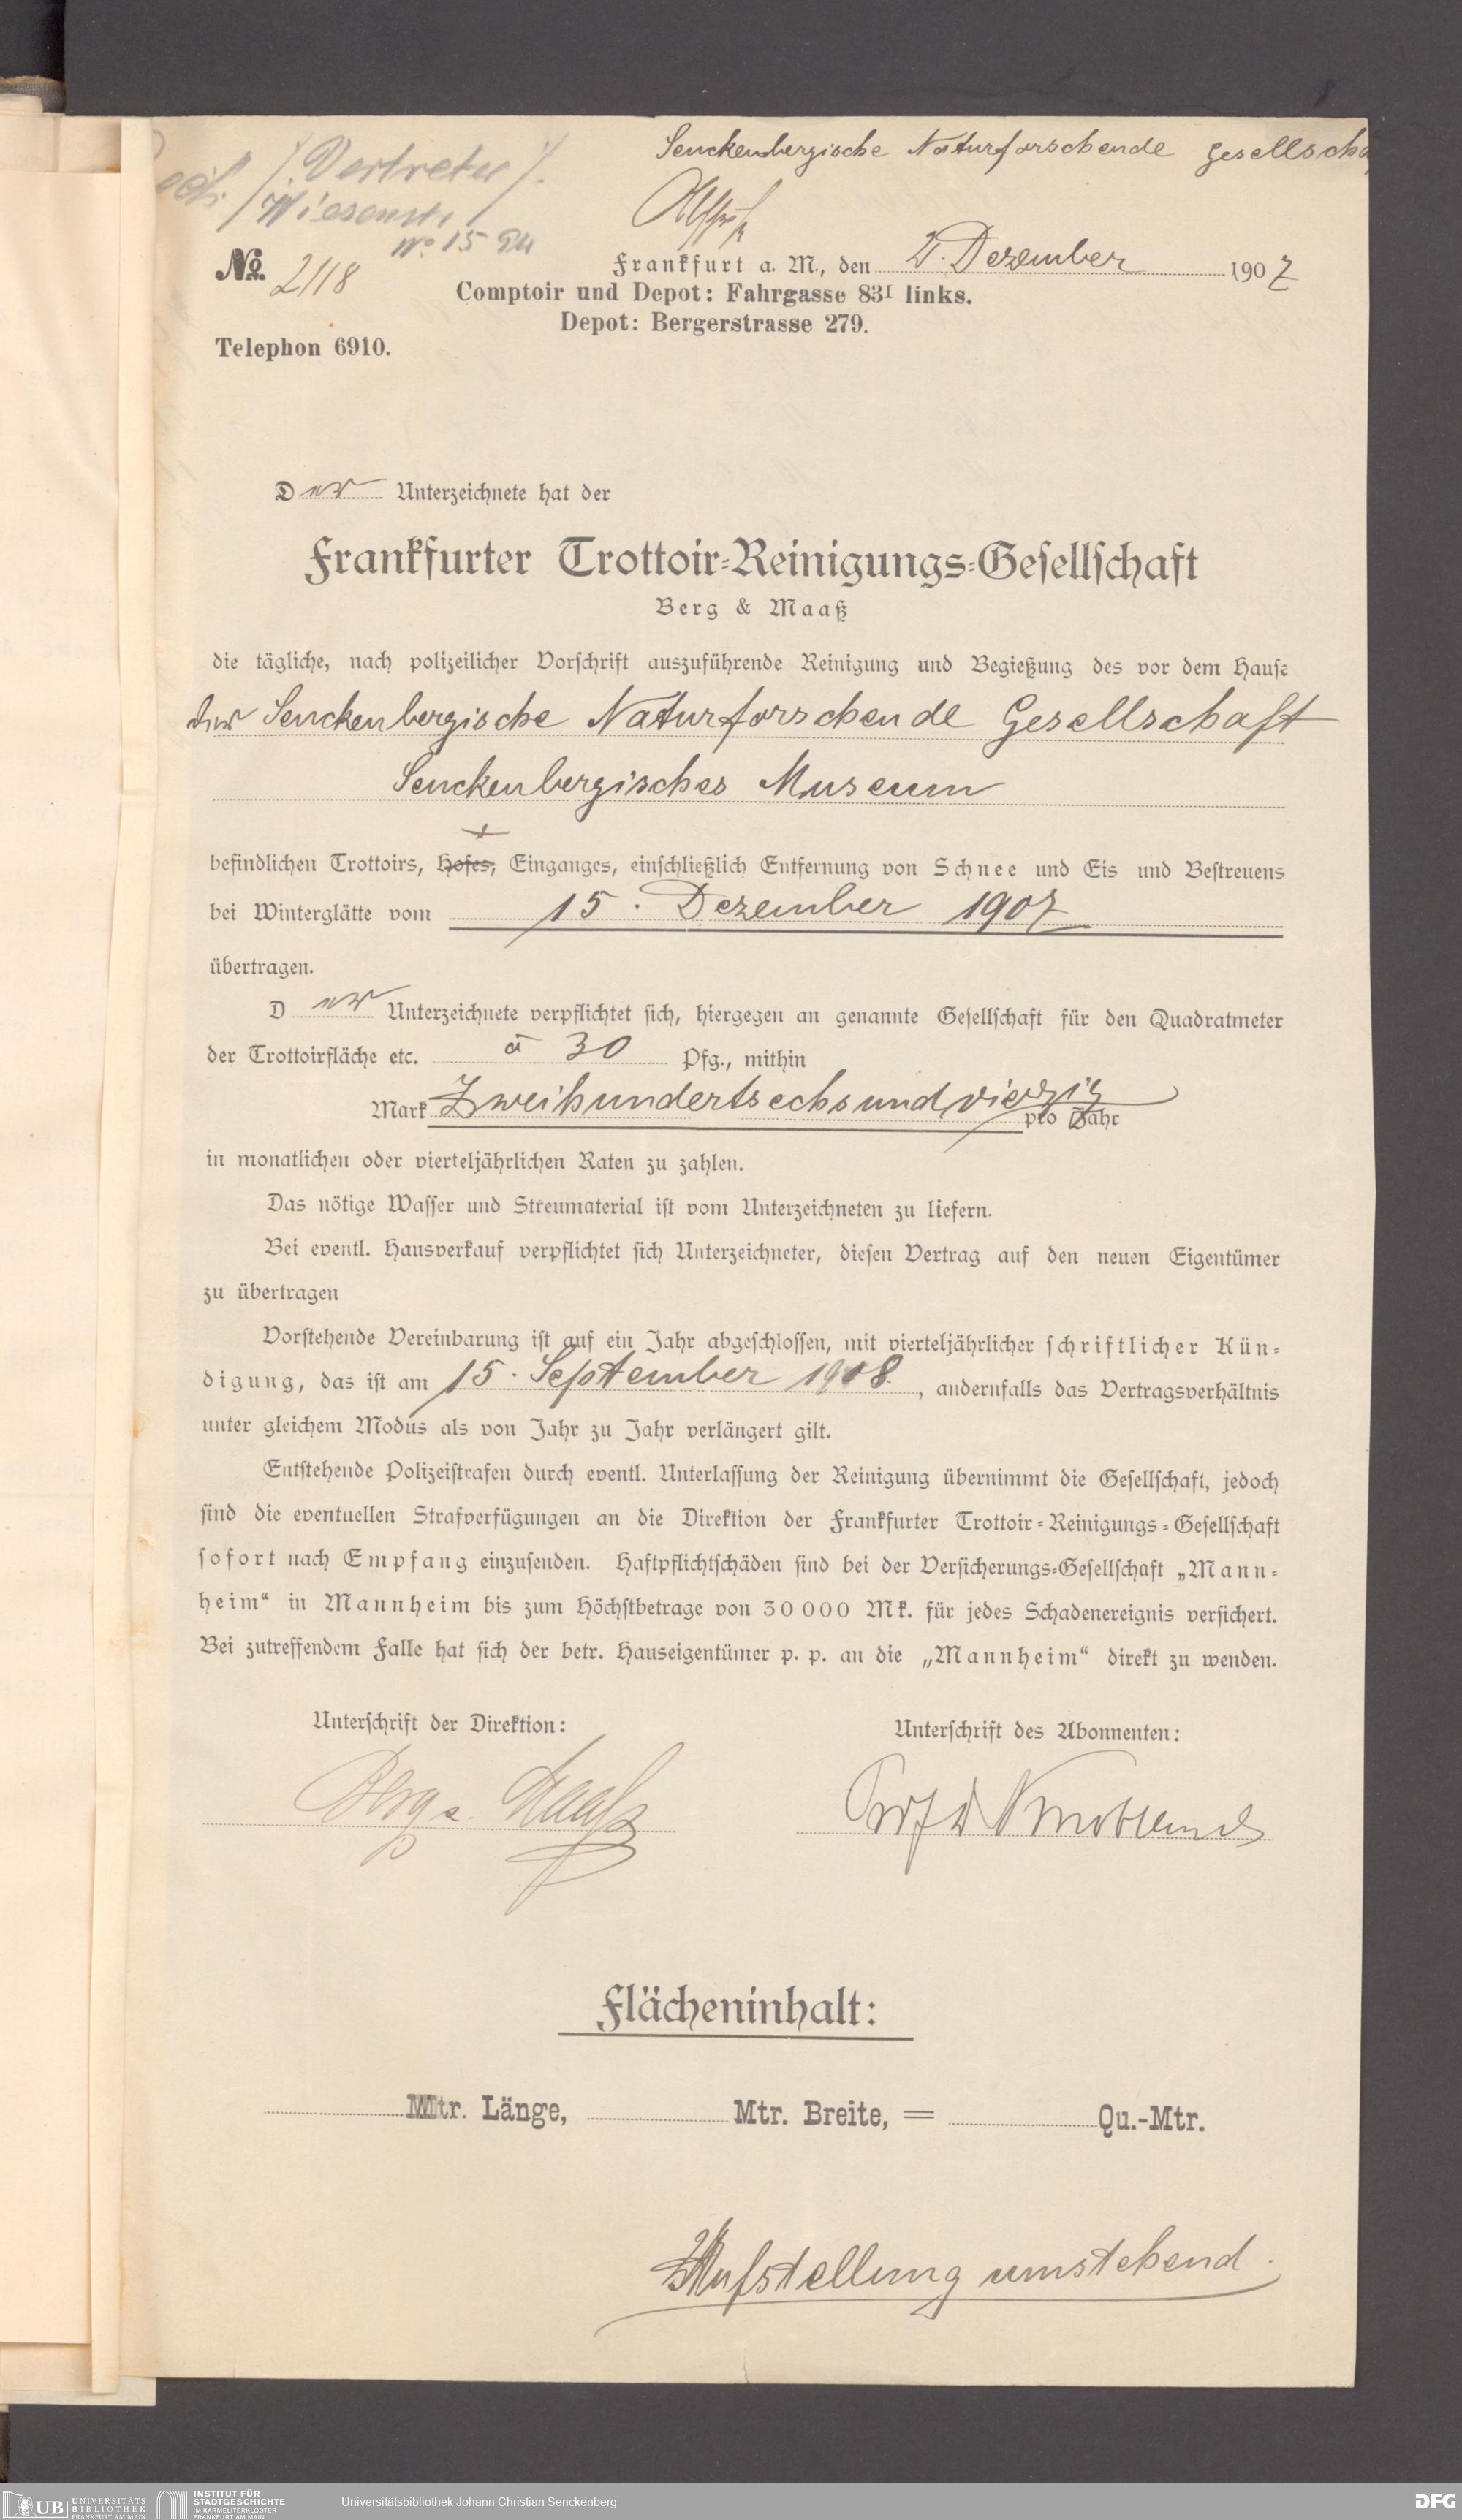 Senckenbergische Naturforschende Gesellscha
/. Vertreter /.
Wiesenstr.
No 15
No. 2118
Frankfurt a. M., den 2. Dezember 1907
Comptoir und Depot: Fahrgasse 83I links.
Depot: Bergerstrasse 279.
Telephon 6910.
Der Unterzeichnete hat der
Frankfurter Trottoir-Reinigungs-Gesellschaft
Berg & Maaß
die tägliche, nach polizeilicher Vorschrift auszuführende Reinigung und Begießung des vor dem Hause
der Senckenbergische Naturforschende Gesellschaft
Senckenbergisches Museum
befindlichen Trottoirs, Hofes, Einganges, einschließlich Entfernung von Schnee und Eis und Bestreuens
bei Winterglätte vom 15. Dezember 1907
übertragen.
Der Unterzeichnete verpflichtet sich, hiergegen an genannte Gesellschaft für den Quadratmeter
der Trottoirfläche etc. à 30 Pfg., mithin
Mark Zweihundertsechsundvierzig pro Jahr
in monatlichen oder vierteljährlichen Raten zu zahlen.
Das nötige Wasser und Streumaterial ist vom Unterzeichneten zu liefern.
Bei eventl. Hausverkauf verpflichtet sich Unterzeichneter, diesen Vertrag auf den neuen Eigentümer
zu übertragen
Vorstehende Vereinbarung ist auf ein Jahr abgeschlossen, mit vierteljährlicher schriftlicher Kün-
digung, das ist am 15. September 1908., andernfalls das Vertragsverhältnis
unter gleichem Modus als von Jahr zu Jahr verlängert gilt.
Entstehende Polizeistrafen durch eventl. Unterlassung der Reinigung übernimmt die Gesellschaft, jedoch
sind die eventuellen Strafverfügungen an die Direktion der Frankfurter Trottoir-Reinigungs-Gesellschaft
sofort nach Empfang einzusenden. Haftpflichtschäden sind bei der Versicherungs-Gesellschaft „Mann-
heim“ in Mannheim bis zum Höchstbetrage von 30 000 Mk. für jedes Schadenereignis versichert.
Bei zutreffendem Falle hat sich der betr. Hauseigentümer p. p. an die „Mannheim“ direkt zu wenden.
Unterschrift der Direktion:
Unterschrift des Abonnenten:
Berg & Maaß
Prof Dr Knoblauch
Flächeninhalt:
Mtr. Länge, Mtr. Breite, = Qu.-Mtr.
Aufstellung umstehend.
UB UNIVERSITÄTS BIBLIOTHEK FRANKFURT AM MAIN
INSTITUT FÜR STADTGESCHICHTE IM KARMELITERKLOSTER FRANKFURT AM MAIN
Universitätsbibliothek Johann Christian Senckenberg
DFG